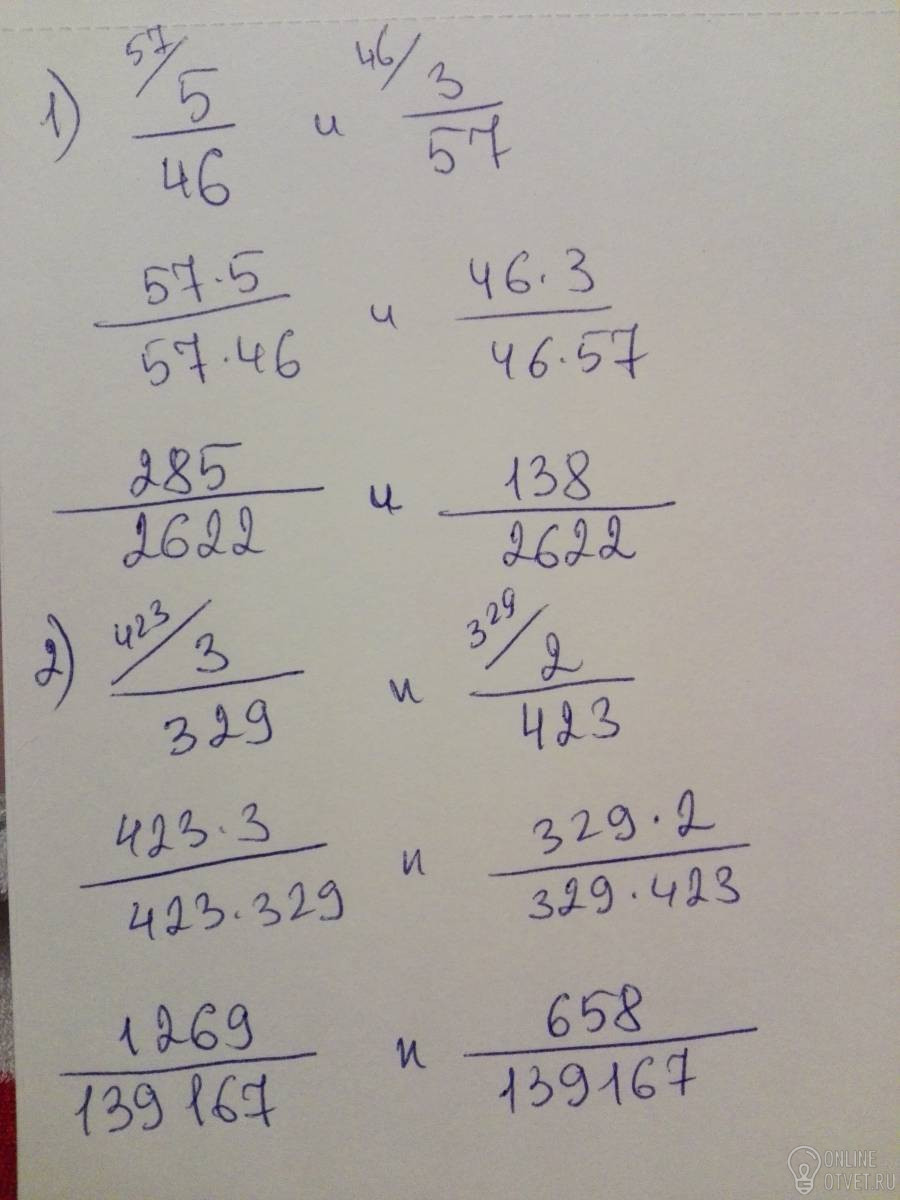 57/ 46/
1) 5/46 и 3/57
57·5/57·46 и 46·3/46·57
285/2622 и 138/2622
423/ 329/
2) 3/329 и 2/423
423·3/423·329 и 329·2/329·423
1269/139167 и 658/139167
ONLINE
OTVET.RU